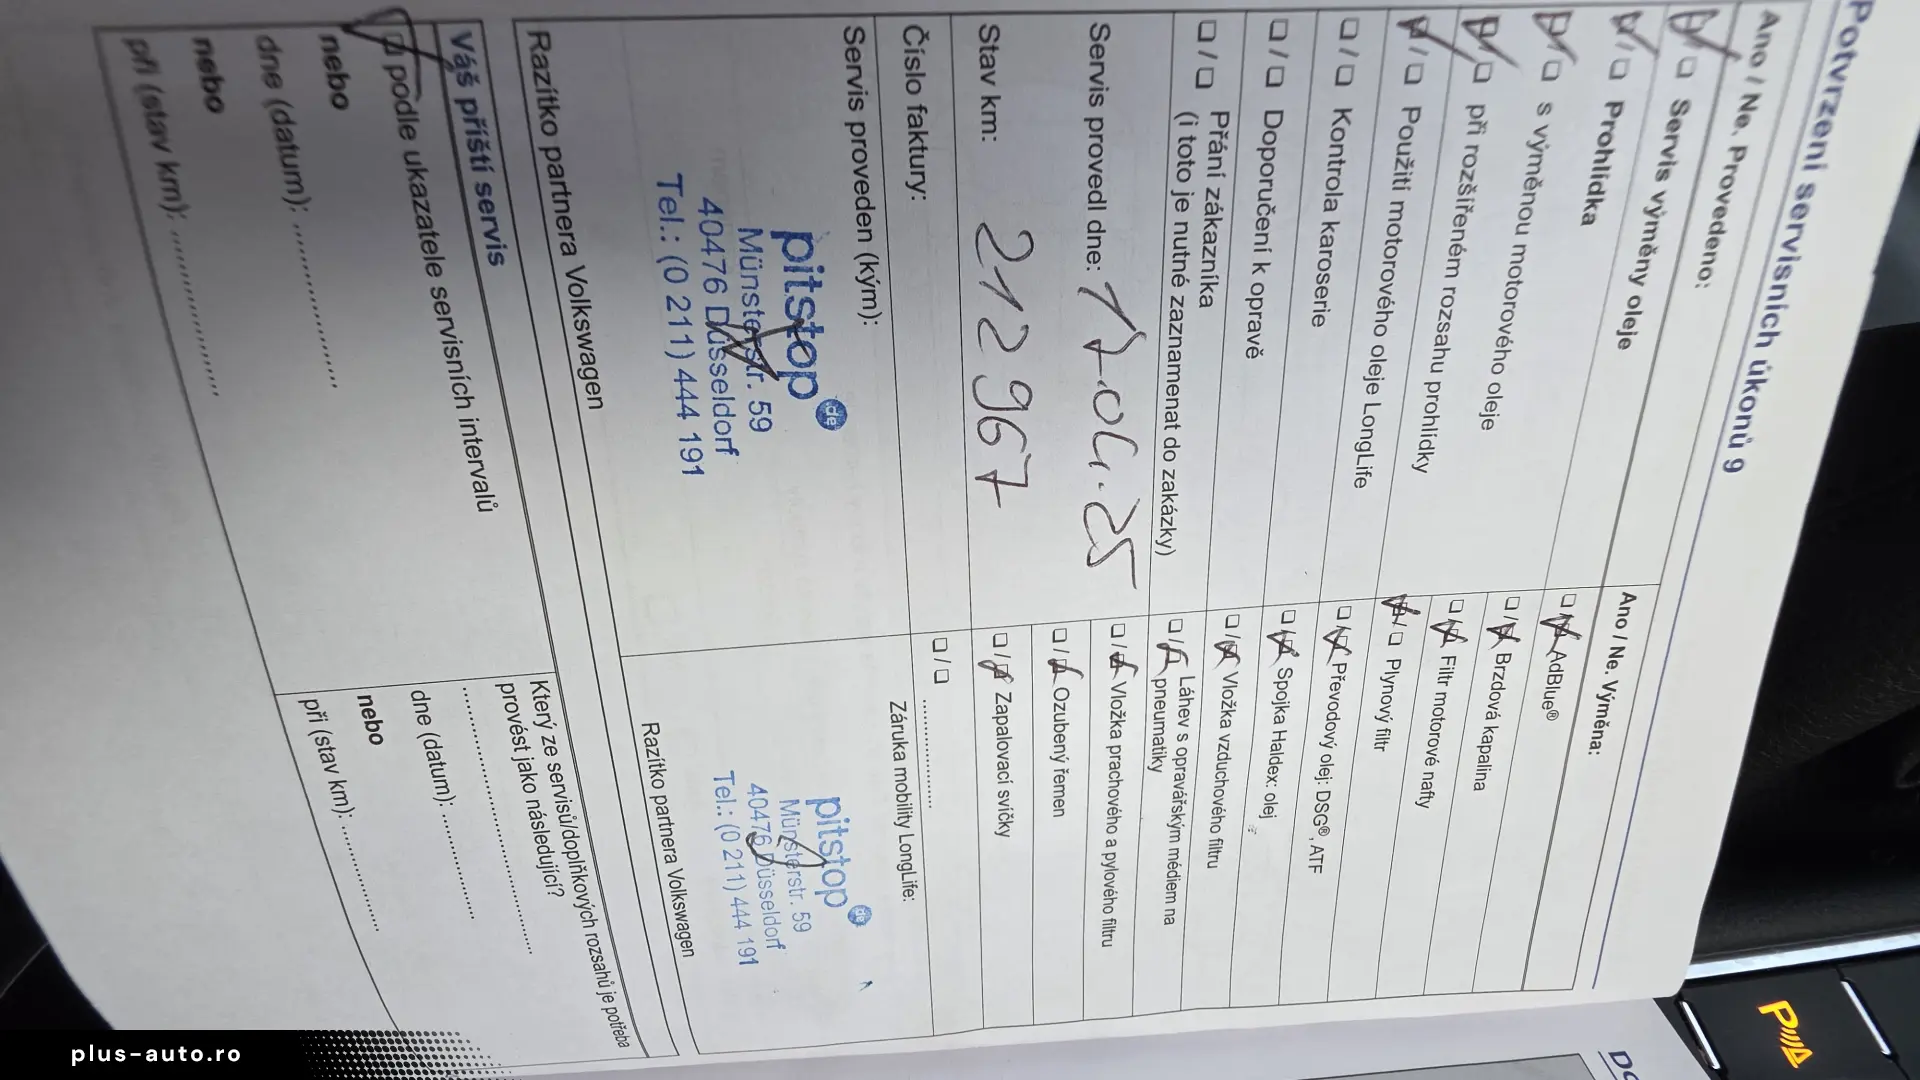 Potvrzení servisních úkonů 9
Ano / Ne. Provedeno:
Servis výměny oleje
Prohlídka
s výměnou motorového oleje
při rozšířeném rozsahu prohlídky
Použití motorového oleje LongLife
Kontrola karoserie
Doporučení k opravě
Přání zákazníka
(i toto je nutné zaznamenat do zakázky)
Servis provedl dne: 17.04.25
Stav km: 212967
Číslo faktury:
Servis proveden (kým):
pitstop.de
Münsterstr. 59
40476 Düsseldorf
Tel.: (0 211) 444 191
Razítko partnera Volkswagen
Ano / Ne. Výměna:
AdBlue®
Brzdová kapalina
Filtr motorové nafty
Plynový filtr
Převodový olej: DSG®, ATF
Spojka Haldex: olej
Vložka vzduchového filtru
Láhev s opravářským médiem na
pneumatiky
Vložka prachového a pylového filtru
Ozubený řemen
Zapalovací svíčky
Záruka mobility LongLife:
pitstop.de
Münsterstr. 59
40476 Düsseldorf
Tel.: (0 211) 444 191
Razítko partnera Volkswagen
Váš příští servis
podle ukazatele servisních intervalů
nebo
dne (datum):
nebo
při (stav km):
Který ze servisů/doplňkových rozsahů je potřeba
provést jako následující?
dne (datum):
nebo
při (stav km):
P
plus-auto.ro